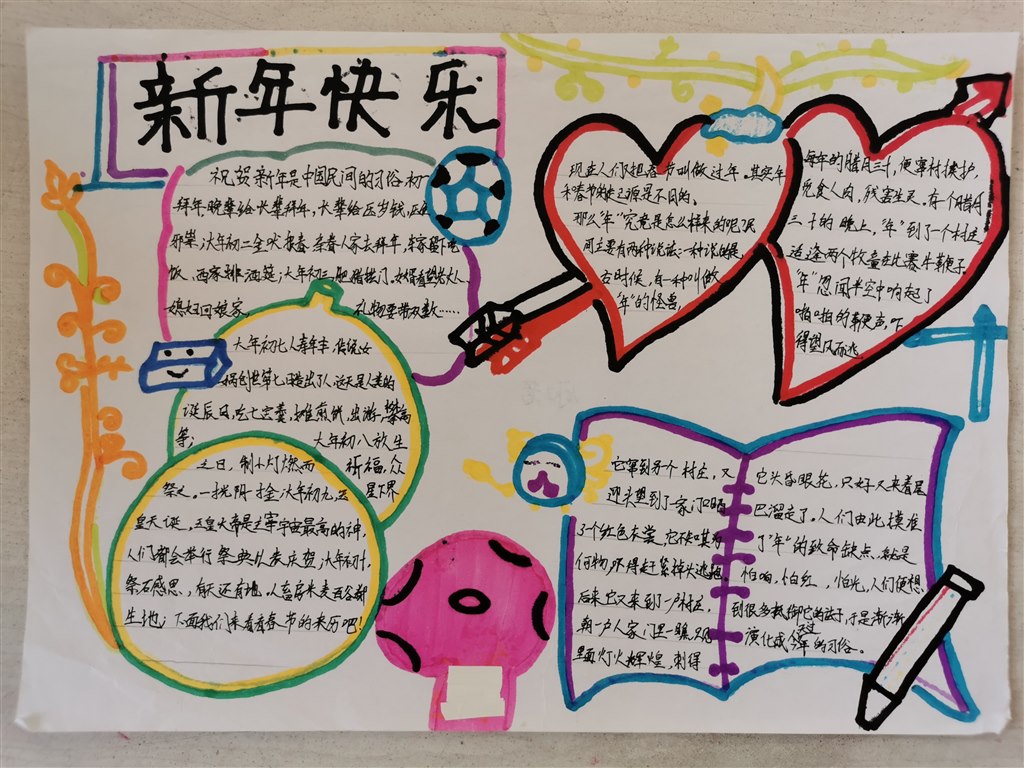 新年快乐
祝贺新年是中国民间的习俗初一
拜年,晚辈给长辈拜年,长辈给压岁钱,压住
邪祟;大年初二金吠报春 春人家去拜年,东家留下吃
饭、西家排酒筵;大年初三肥猪拱门,女婿看望老丈人、
媳妇回娘家。 礼物要带双数……
大年初七人寿年丰,传说女
娲创世第七日造出了人,这天是人类的
诞辰日,吃七宝羹,摊煎饼,出游,登高
等; 大年初八放生
之日,制小灯燃而 祈福,众
祭之。 星下界
皇天诞,玉皇大帝是主宰宇宙最高的神,
人们都会举行祭典以表庆贺;大年初十,
祭石感恩,
生地;下面我们来看看春节的来历吧!
现在人们把春节叫做过年。其实年
和春节的起源是不同的。
那么“年”究竟是怎么样来的呢?民
间主要有两种说法:一种说的是,
古时候,有一种叫做
“年”的怪兽,
每年的腊月三十,便窜村挨户,
觅食人肉,残害生灵。有一个腊月
三十的晚上,“年”到了一个村庄,
适逢两个牧童在比赛牛鞭子,
“年”忽闻半空中响起了
啪啪的鞭声,吓
得望风而逃。
它窜到另一个村庄,又
迎头望到了一家门口晒
了个红色衣裳,它不知其为
何物,吓得赶紧掉头逃跑。
后来它又来到一户村庄,
朝一户人家门里一瞧,只见
里面灯火辉煌,刺得
它头昏眼花,只好又夹着尾
巴溜走了。人们由此摸准
了“年”的致命缺点,就是
怕响,怕红,怕光,人们便想
到很多抵御它的方法,于是渐渐
演化成今年过年的习俗。